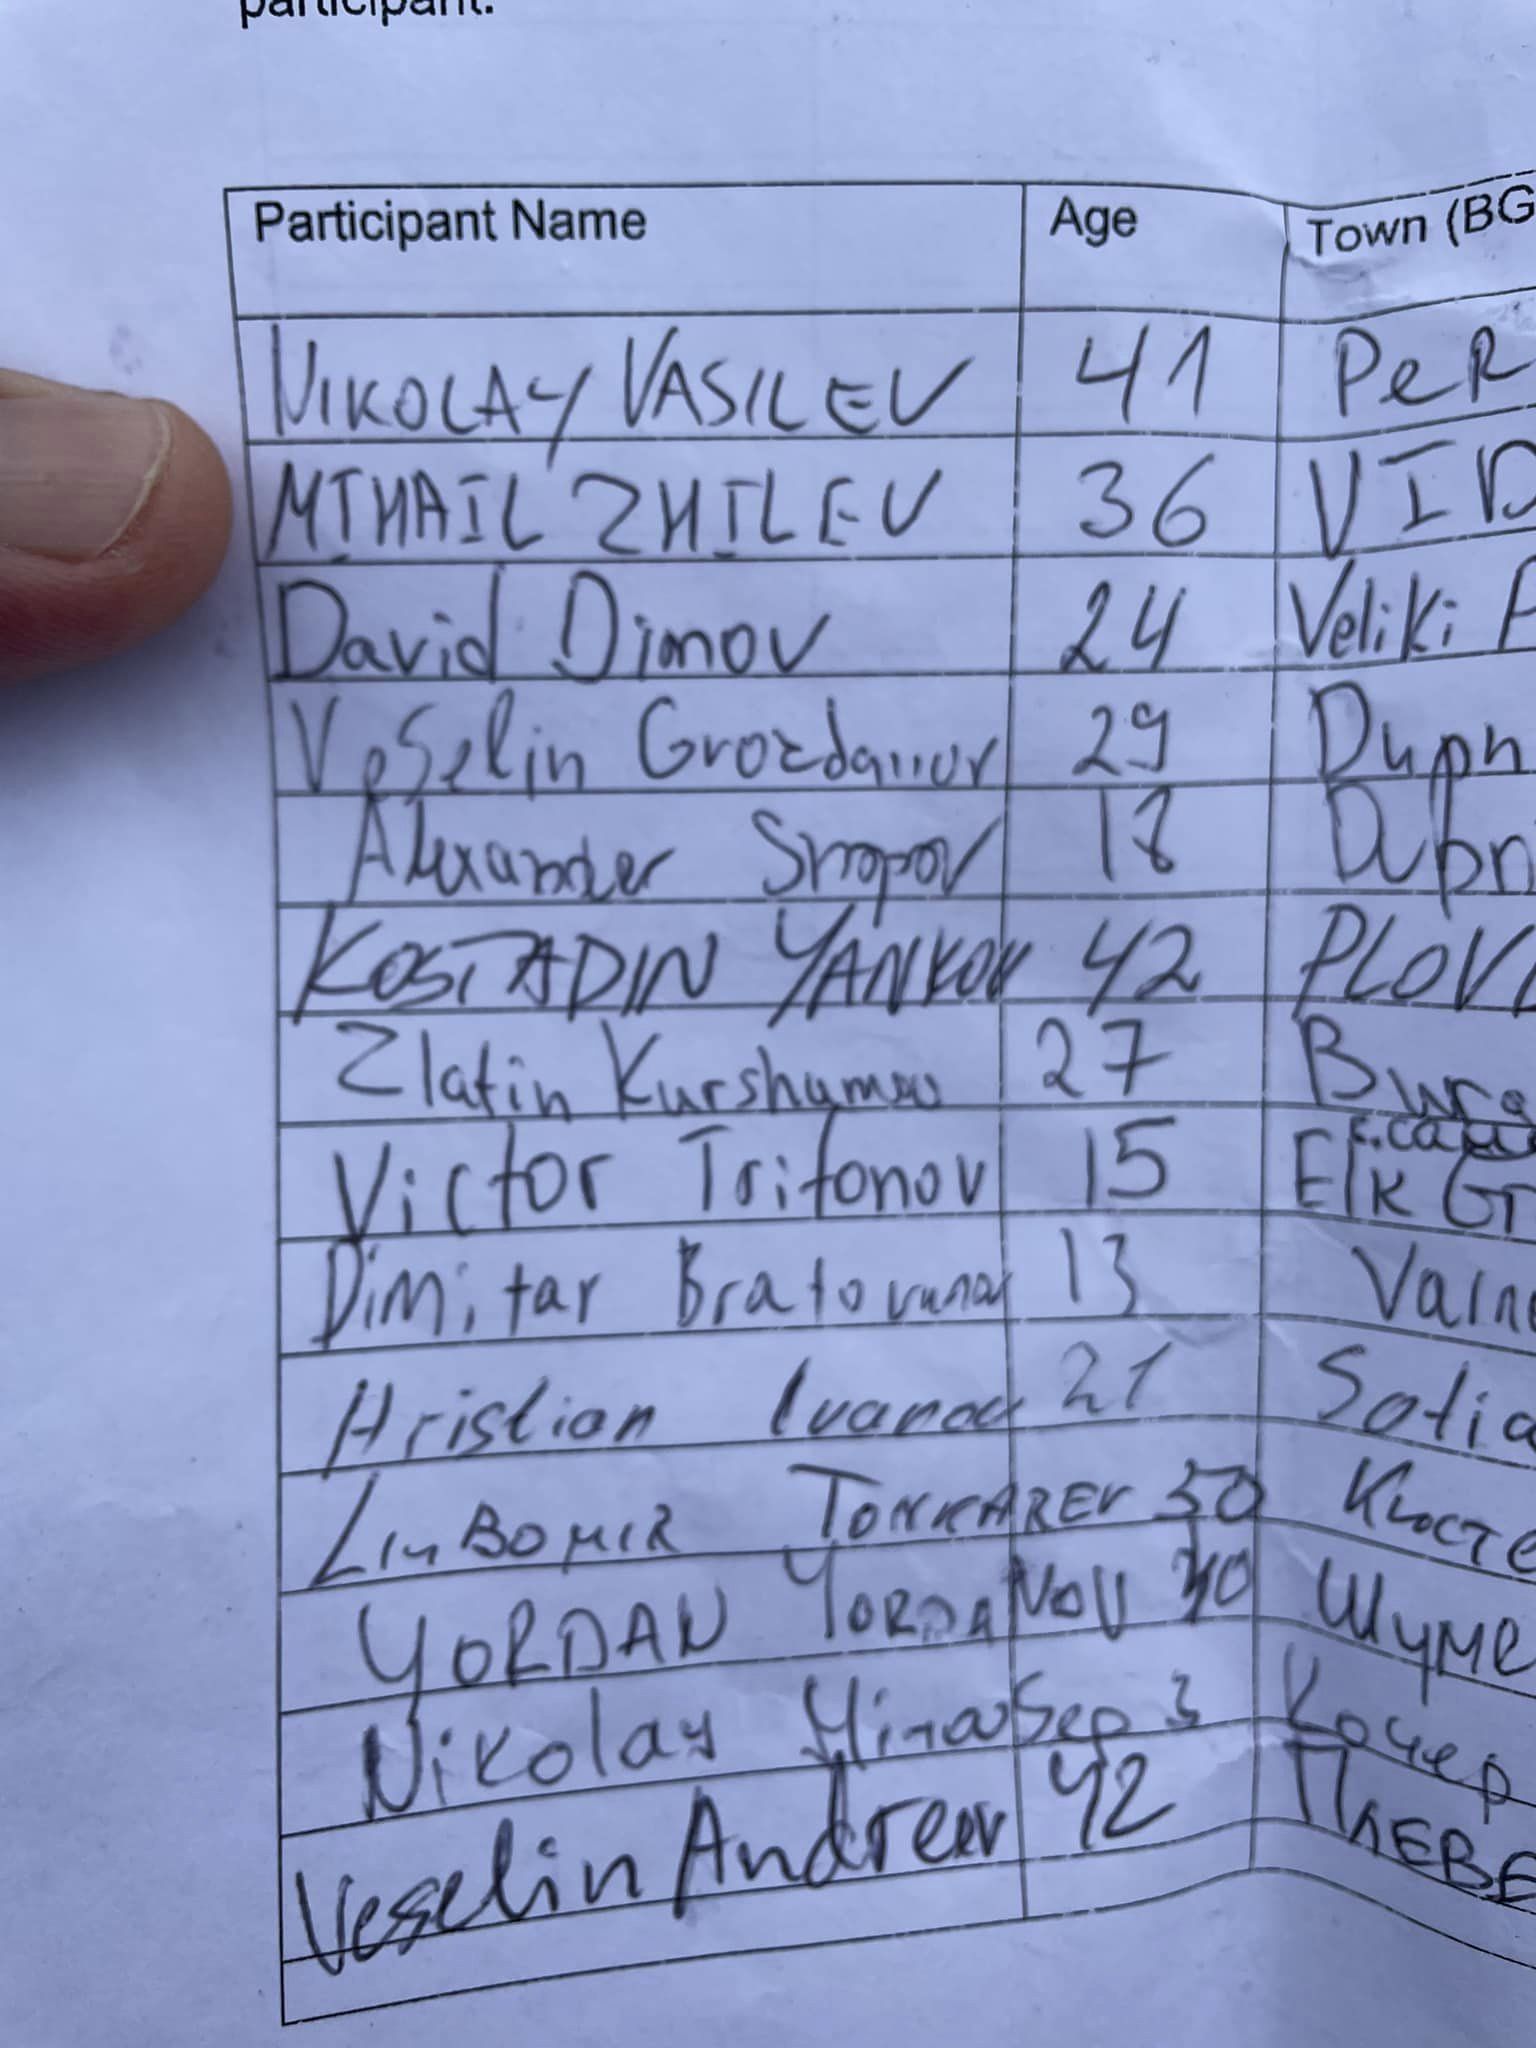 participant.
Participant Name Age Town (BG
NIKOLAY VASILEV 41 PeR
MIHAIL ZHILEV 36 VID
David Dimov 24 Veliki P
Veselin Grozdanov 29 Dupn
Alexander 18 Dupn
KOSTADIN YANKOV 42 PLOV
Zlatin 27 Burga
Victor Trifonov 15 Elk Gr
Dimitar 13 Varn
Hristian Ivanov 21 Sofia
LIUBOMIR Кюсте
YORDAN YORDANOV 40 Шуме
Nikolay Кочер
Veselin Andreev 42 ПлЕВЕ